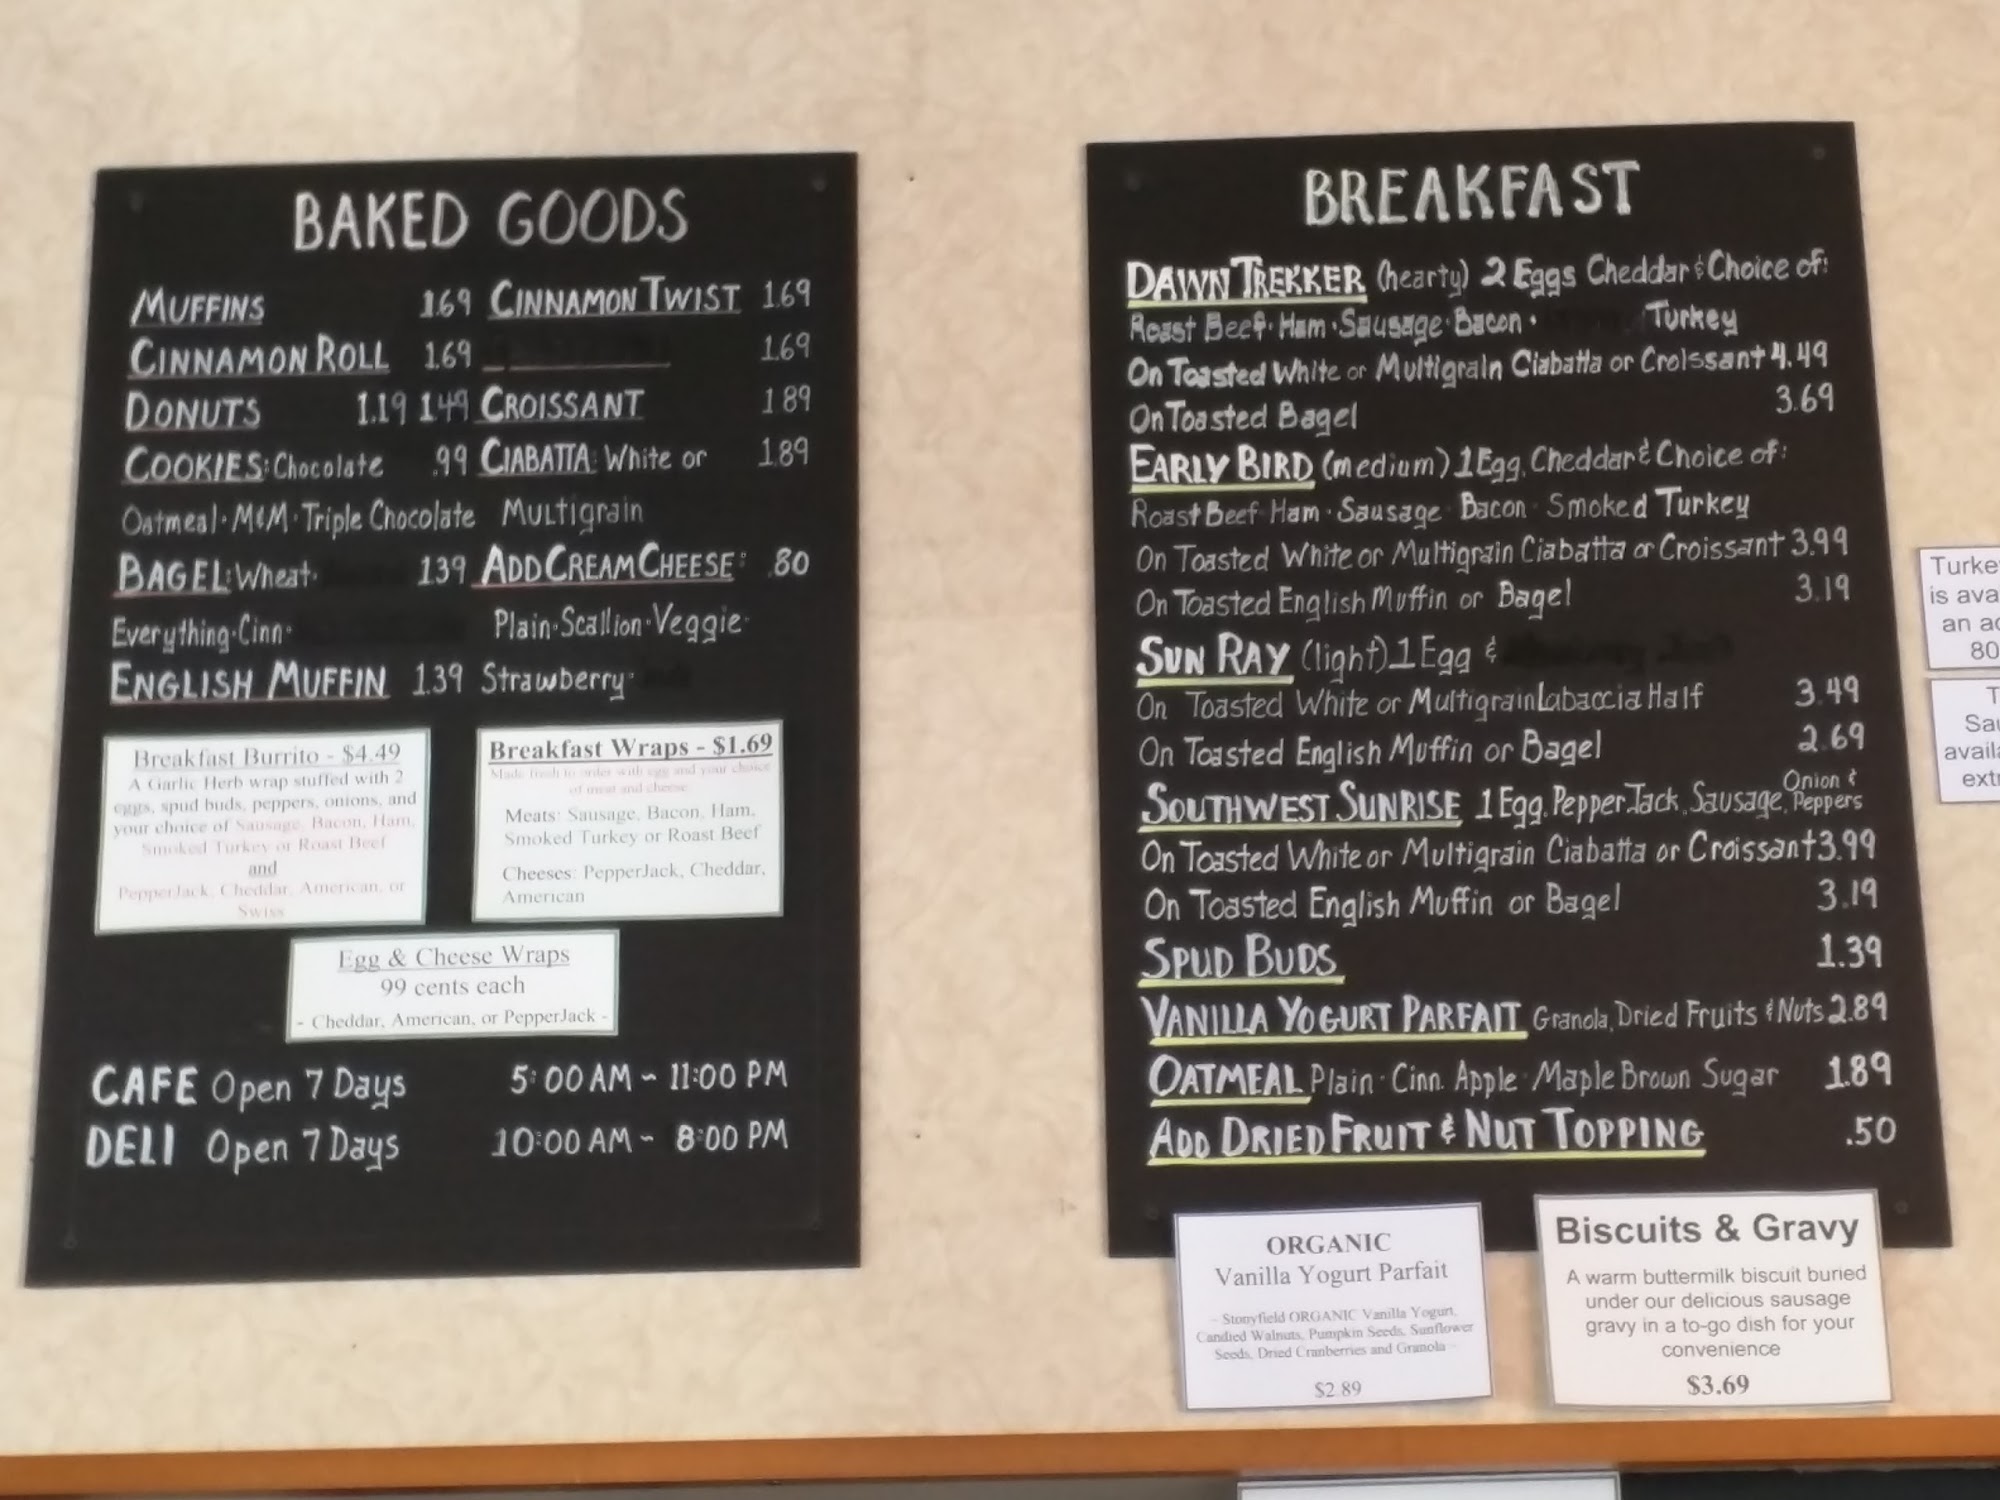 BAKED GOODS
MUFFINS 1.69
CINNAMON ROLL 1.69
DONUTS 1.19 1.49
COOKIES: Chocolate .99
Oatmeal · M&M · Triple Chocolate
BAGEL: Wheat · 1.39
Everything · Cinn ·
ENGLISH MUFFIN 1.39
CINNAMON TWIST 1.69
1.69
CROISSANT 1.89
CIABATTA: White or 1.89
Multigrain
ADD CREAM CHEESE: .80
Plain · Scallion · Veggie ·
Strawberry ·
Breakfast Burrito - $4.49
A Garlic Herb wrap stuffed with 2
eggs, spud buds, peppers, onions, and
your choice of Sausage, Bacon, Ham,
Smoked Turkey or Roast Beef
and
PepperJack, Cheddar, American, or
Swiss
Breakfast Wraps - $1.69
Made fresh to order with egg and your choice
of meat and cheese
Meats: Sausage, Bacon, Ham,
Smoked Turkey or Roast Beef
Cheeses: PepperJack, Cheddar,
American
Egg & Cheese Wraps
99 cents each
- Cheddar, American, or PepperJack -
CAFE Open 7 Days 5:00 AM ~ 11:00 PM
DELI Open 7 Days 10:00 AM ~ 8:00 PM
BREAKFAST
DAWN TREKKER (hearty) 2 Eggs Cheddar & Choice of:
Roast Beef · Ham · Sausage · Bacon · Turkey
On Toasted White or Multigrain Ciabatta or Croissant 4.49
On Toasted Bagel 3.69
EARLY BIRD (medium) 1 Egg, Cheddar & Choice of:
Roast Beef Ham · Sausage Bacon · Smoked Turkey
On Toasted White or Multigrain Ciabatta or Croissant 3.99
On Toasted English Muffin or Bagel 3.19
SUN RAY (light) 1 Egg &
On Toasted White or Multigrain Labaccia Half 3.49
On Toasted English Muffin or Bagel 2.69
SOUTHWEST SUNRISE 1 Egg, Pepper Jack, Sausage, Onion & Peppers
On Toasted White or Multigrain Ciabatta or Croissant 3.99
On Toasted English Muffin or Bagel 3.19
SPUD BUDS 1.39
VANILLA YOGURT PARFAIT Granola, Dried Fruits & Nuts 2.89
OATMEAL Plain · Cinn. Apple · Maple Brown Sugar 1.89
ADD DRIED FRUIT & NUT TOPPING .50
ORGANIC
Vanilla Yogurt Parfait
- Stonyfield ORGANIC Vanilla Yogurt,
Candied Walnuts, Pumpkin Seeds, Sunflower
Seeds, Dried Cranberries and Granola -
$2.89
Biscuits & Gravy
A warm buttermilk biscuit buried
under our delicious sausage
gravy in a to-go dish for your
convenience
$3.69
Turke
is ava
an ad
80
T
Sau
availa
extr